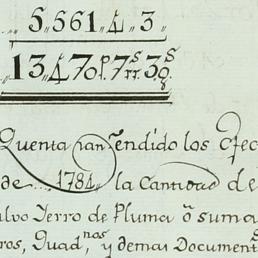 5,,561,,4,,3,,
13,,470p.s 7rr.s 3o.s
Quenta van Tendido los efec
de... 1784,, la Cantidad de
alvo Yerro de Pluma ô suma
ros, Quad,nos y demas Document